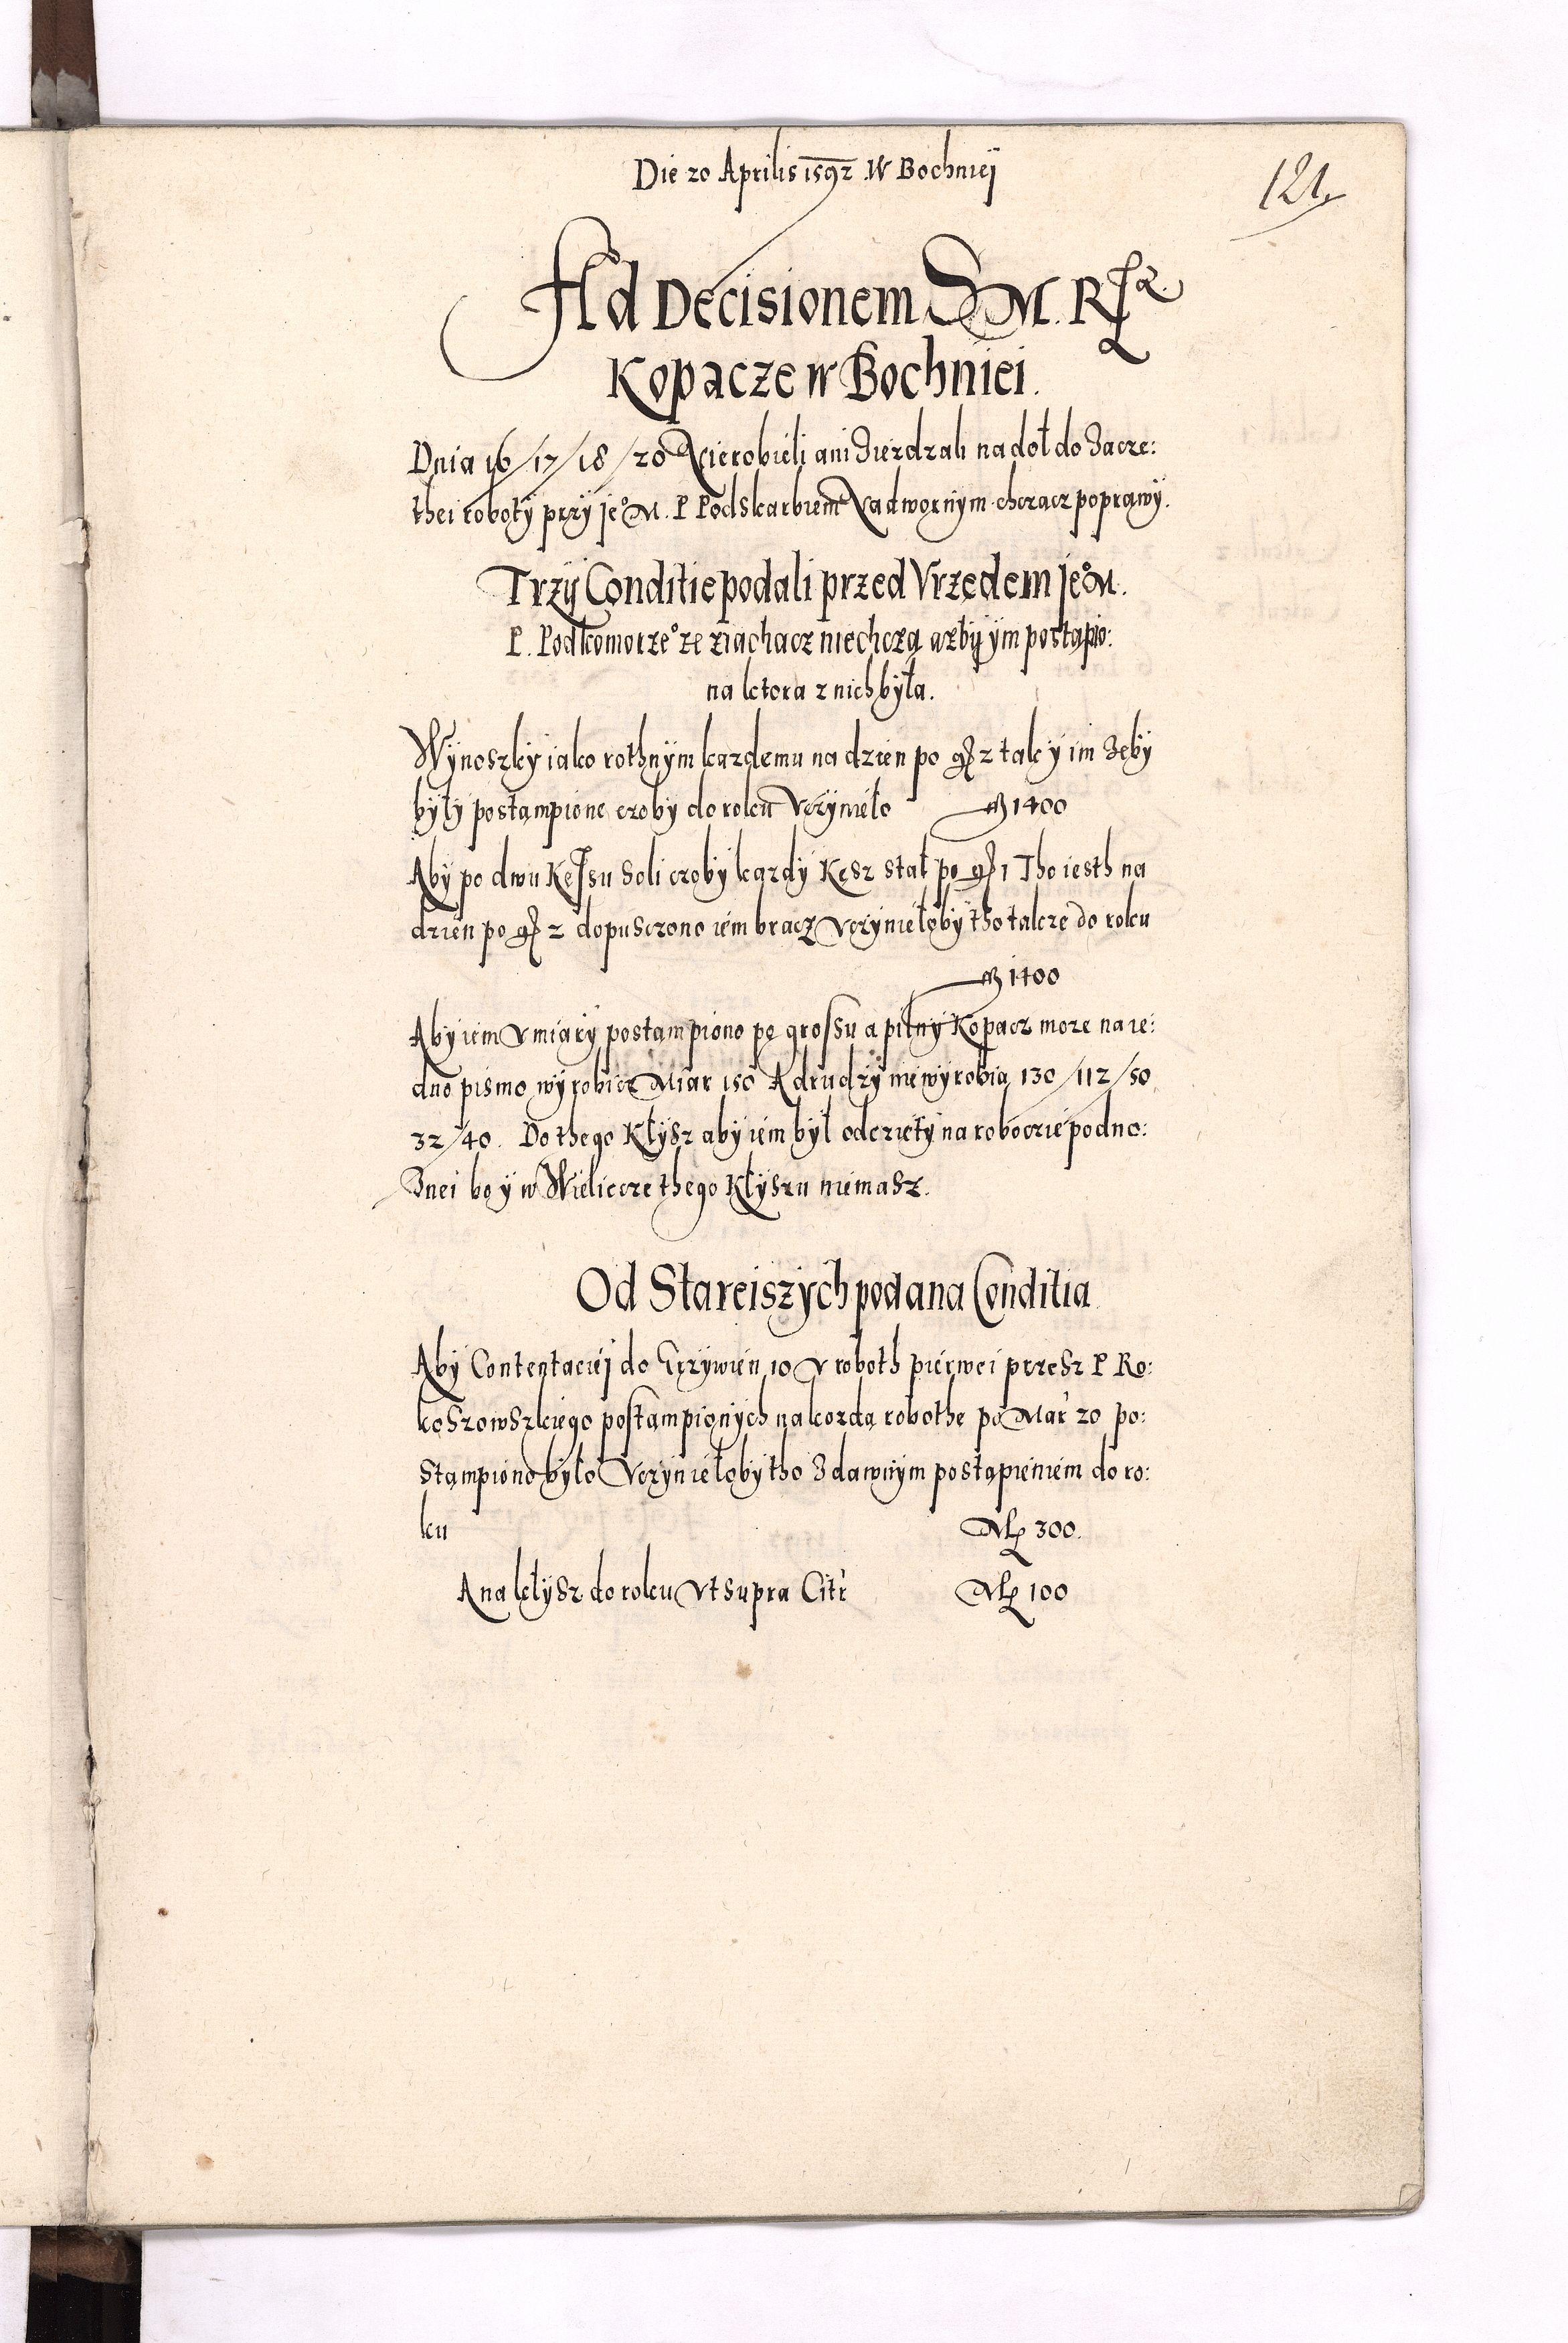 Die 20 Aprilis 1592 W Bochniej
121.
Ad Decisionem S M. R
Kopacze w Bochniei.
Dnia 16/17/18/20 Nierobieli ani Zierdzali na doł do Zacze:
thei roboty przy jeº M. P Podskarbiem Nadwornym chczacz poprawy.
Trzy Conditie podali przed Vrzedem jeº M.
P. Podkomorzeº ze ziachacz niechczą azby ym postąpio:
na ktora z nich była.
Wynoszky iako rothnym kazdemu na dzien po gꝭ 2 tak y im Zeby
były postąmpione czoby do roku Vczynieło 1400
Aby po dwu Kęssu Soli czoby kazdy Kęsz stał po gꝭ 1 Tho iesth na
dzien po gꝭ 2 dopusczono iem bracz Vczyniełoby tho takze do roku
1400
Aby iem V miary postampiono po grossu a pilny Kopacz moze na ie:
dno pismo wyrobicz Miar 150 A drudzy niewyrobia 130/112/50
32/40. Do thego Kłysz aby iem był odczięty na roboczie podno:
Znei bo y w Wieliccze thego Kłyszu niemasz.
Od Stareiszych podana Conditia
Aby Contentaciej do Grzywien 10 V roboth pierwei przesz P Ro:
koszowszkiego postampionych na kozdą robothe po Mar 20 po:
stampiono było Vczyniełoby tho Z dawnym postąpieniem do ro:
ku Mꝝ 300.
A na kłysz do roku Vt supra Citr Mꝝ 100